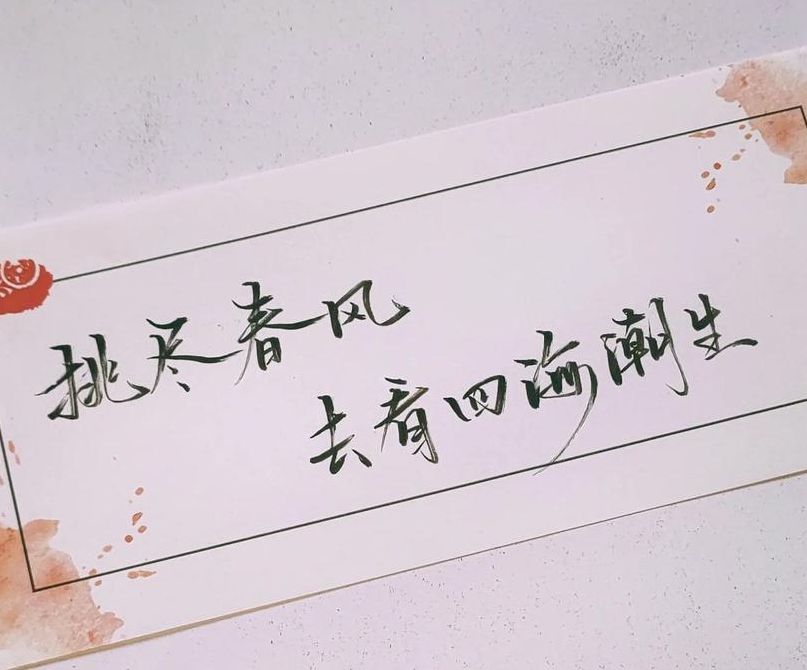 挑尽春风
去看四海潮生